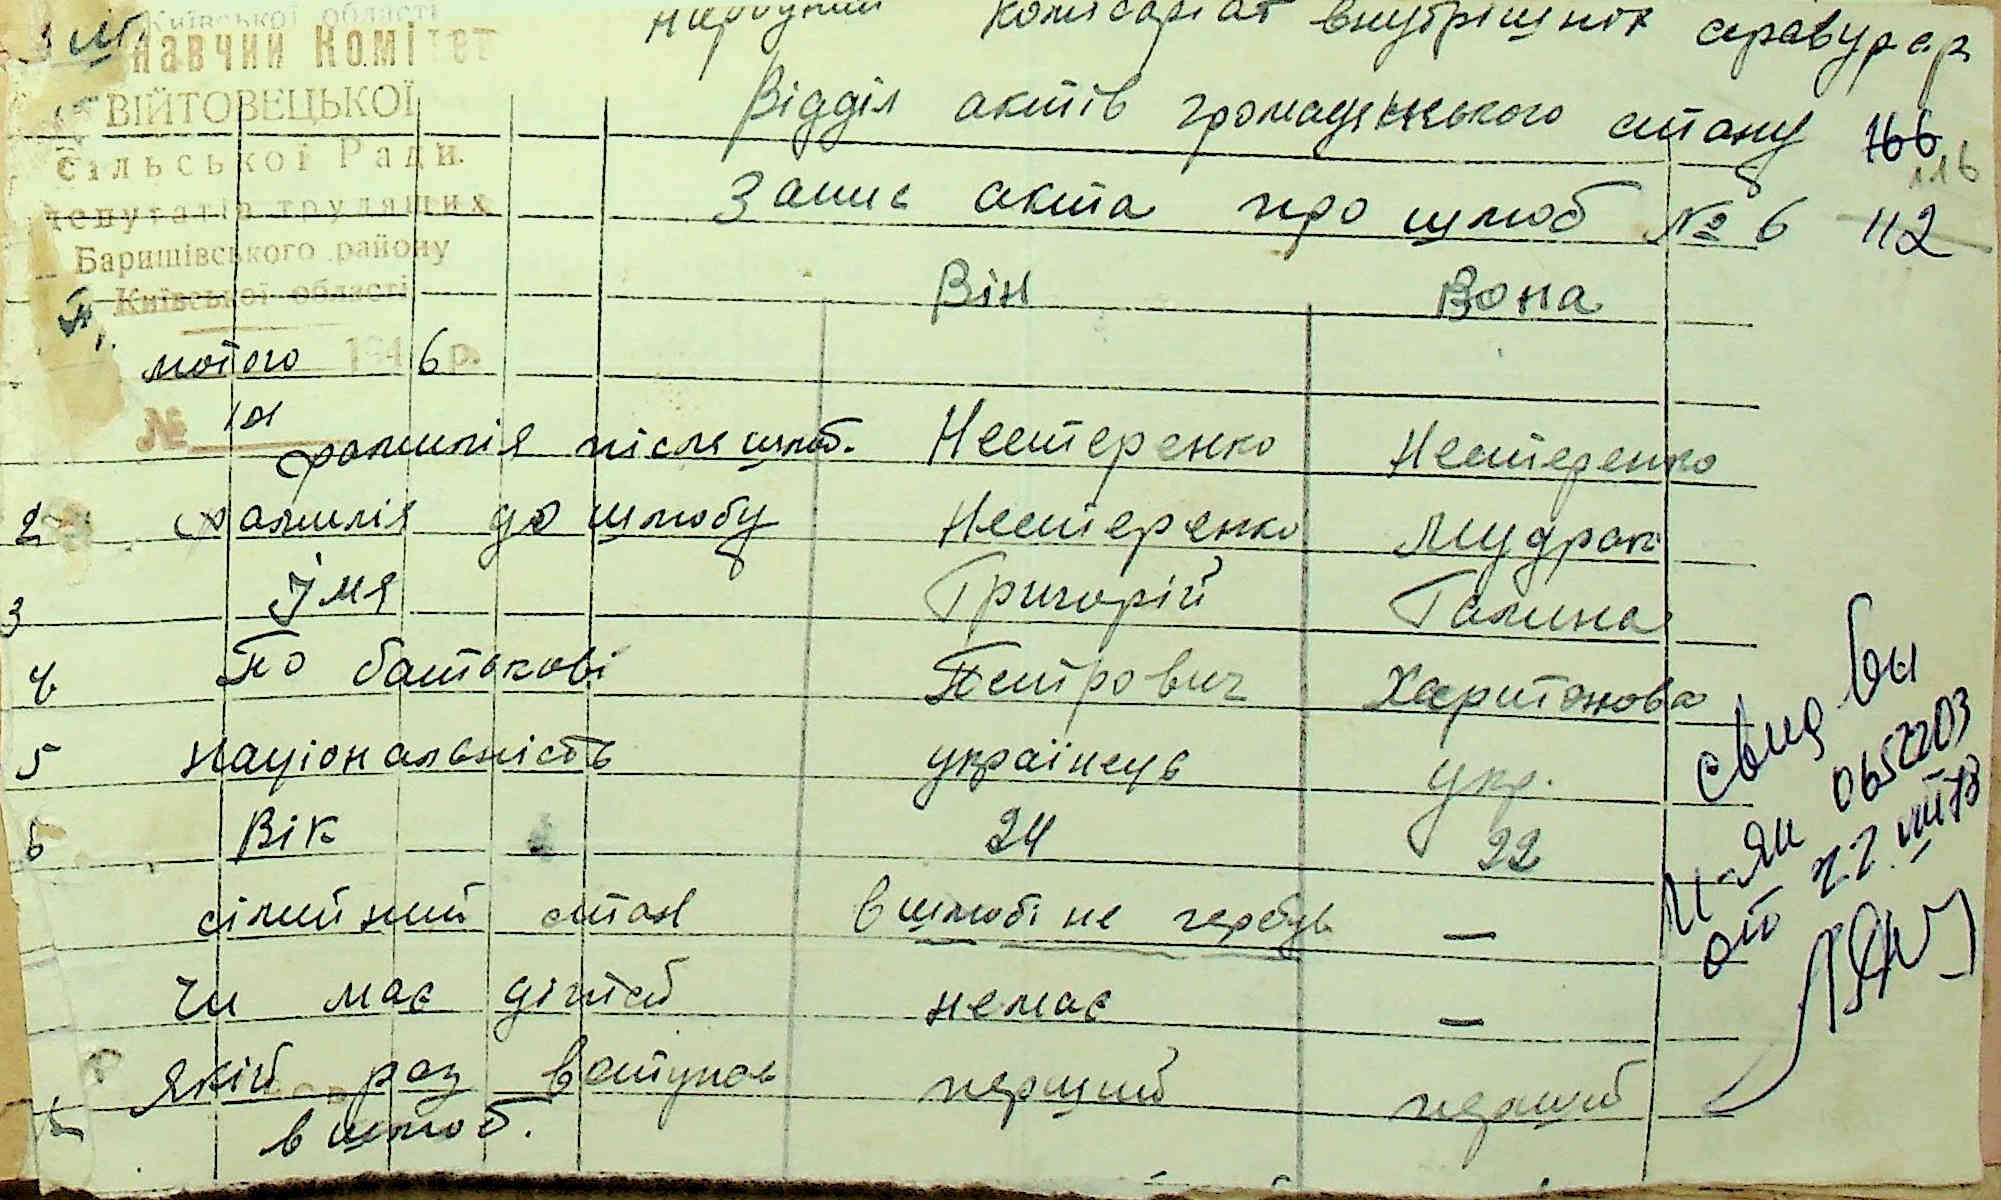 Київської області
навчий Комітет
ВІЙТОВЕЦЬКОЇ
сільської Ради
депутатів трудящих
Баришівського району
Київської області
лютого 1946 р.
№
Народний Комісаріат внутрішніх справ УРСР
Відділ актів громадянського стану 166
116
Запис акта про шлюб № 6 112
Він Вона
фамилія після шлюб. Нестеренко Нестеренко
2 фамилія до шлюбу Нестеренко Мудрак
3 Імя Григорій Галина
4 По батькові Петрович Харитонова
5 Національність українець укр.
6 Вік 24 22
сімийний стан в шлюбі не перебув —
чи має дітей немає —
якій раз вступає перший перший
в шлюб.
свид вы
0652203
от 22